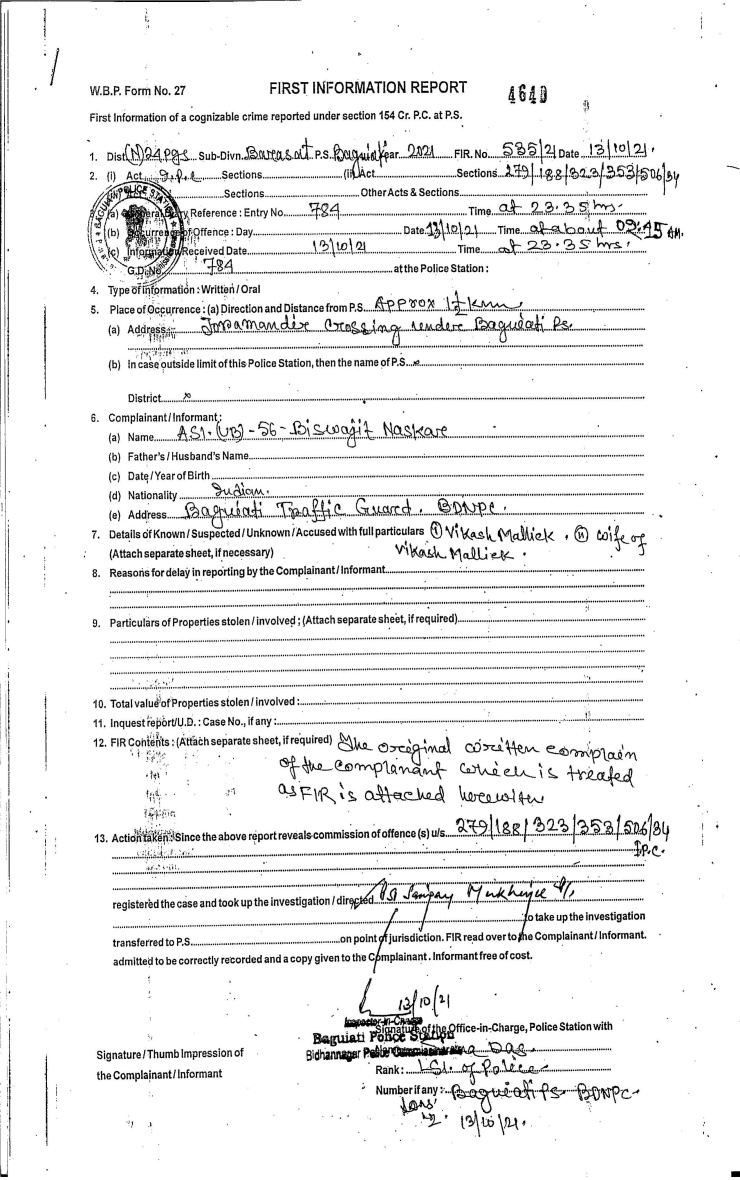 W.B.P. Form No. 27
FIRST INFORMATION REPORT
4640
First Information of a cognizable crime reported under section 154 Cr. P.C. at P.S.
1. Dist (N) 24 Pgs Sub-Divn. Barasat P.S. Baguiati Year 2021 FIR. No. 535/21 Date 13/10/21.
2. (i) Act I.P.C Sections (ii) Act Sections 279/188/323/353/506/34
Sections Other Acts & Sections
(a) General Diary Reference : Entry No. 784 Time at 23.35 hrs.
(b) Occurrence of Offence : Day Date 13/10/21 Time at about 09:45 AM.
(c) Information Received Date 13/10/21 Time at 23.35 hrs.
G.D. No. 784 at the Police Station :
BAGUIATI POLICE STATION
4. Type of Information : Written / Oral
5. Place of Occurrence : (a) Direction and Distance from P.S. Approx 1½ kmr
(a) Address Crossing under Baguiati Ps.
(b) In case outside limit of this Police Station, then the name of P.S. x
District x
6. Complainant / Informant :
(a) Name ASI. (UB) - 56 - Biswajit Naskar
(b) Father's / Husband's Name
(c) Date / Year of Birth
(d) Nationality Indian.
(e) Address Baguiati Traffic Guard. BDNPC.
7. Details of Known / Suspected / Unknown / Accused with full particulars (i) Vikash Mallick . (ii) wife of
(Attach separate sheet, if necessary) Vikash Mallick .
8. Reasons for delay in reporting by the Complainant / Informant
9. Particulars of Properties stolen / involved ; (Attach separate sheet, if required)
10. Total value of Properties stolen / involved :
11. Inquest report/U.D. : Case No., if any :
12. FIR Contents : (Attach separate sheet, if required) The original written complain
of the complenant which is treated
as FIR is attached herewith
13. Action taken : Since the above report reveals commission of offence (s) u/s 279/188/323/353/506/34
I.P.C.
registered the case and took up the investigation / directed Sanjay Mukherjee
to take up the investigation
transferred to P.S. on point of jurisdiction. FIR read over to the Complainant / Informant.
admitted to be correctly recorded and a copy given to the Complainant. Informant free of cost.
13/10/21
Inspector-in-Charge
Signature of the Office-in-Charge, Police Station with
Baguiati Police Station
Bidhannagar Police Commissionerate Das
Signature / Thumb Impression of
the Complainant / Informant
Rank : SI. of Police
Number if any : Baguiati Ps. BDNPC.
13/10/21.